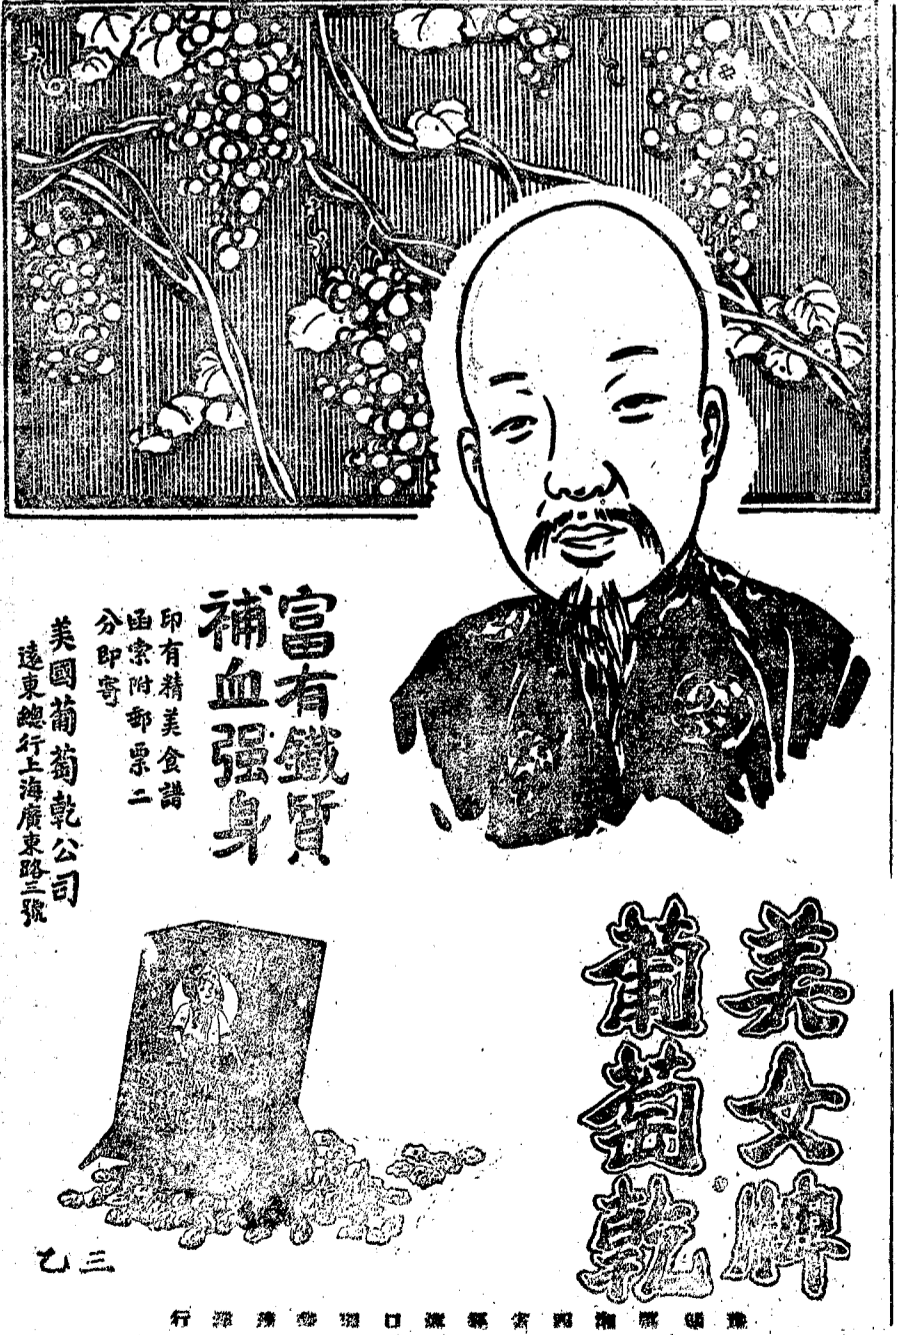 美女牌
葡萄乾
富有鐵質
補血强身
印有精美食譜
函索附郵票二
分即寄
美國葡萄乾公司
遠東總行上海廣東路三號
SUN-MAID
三乙